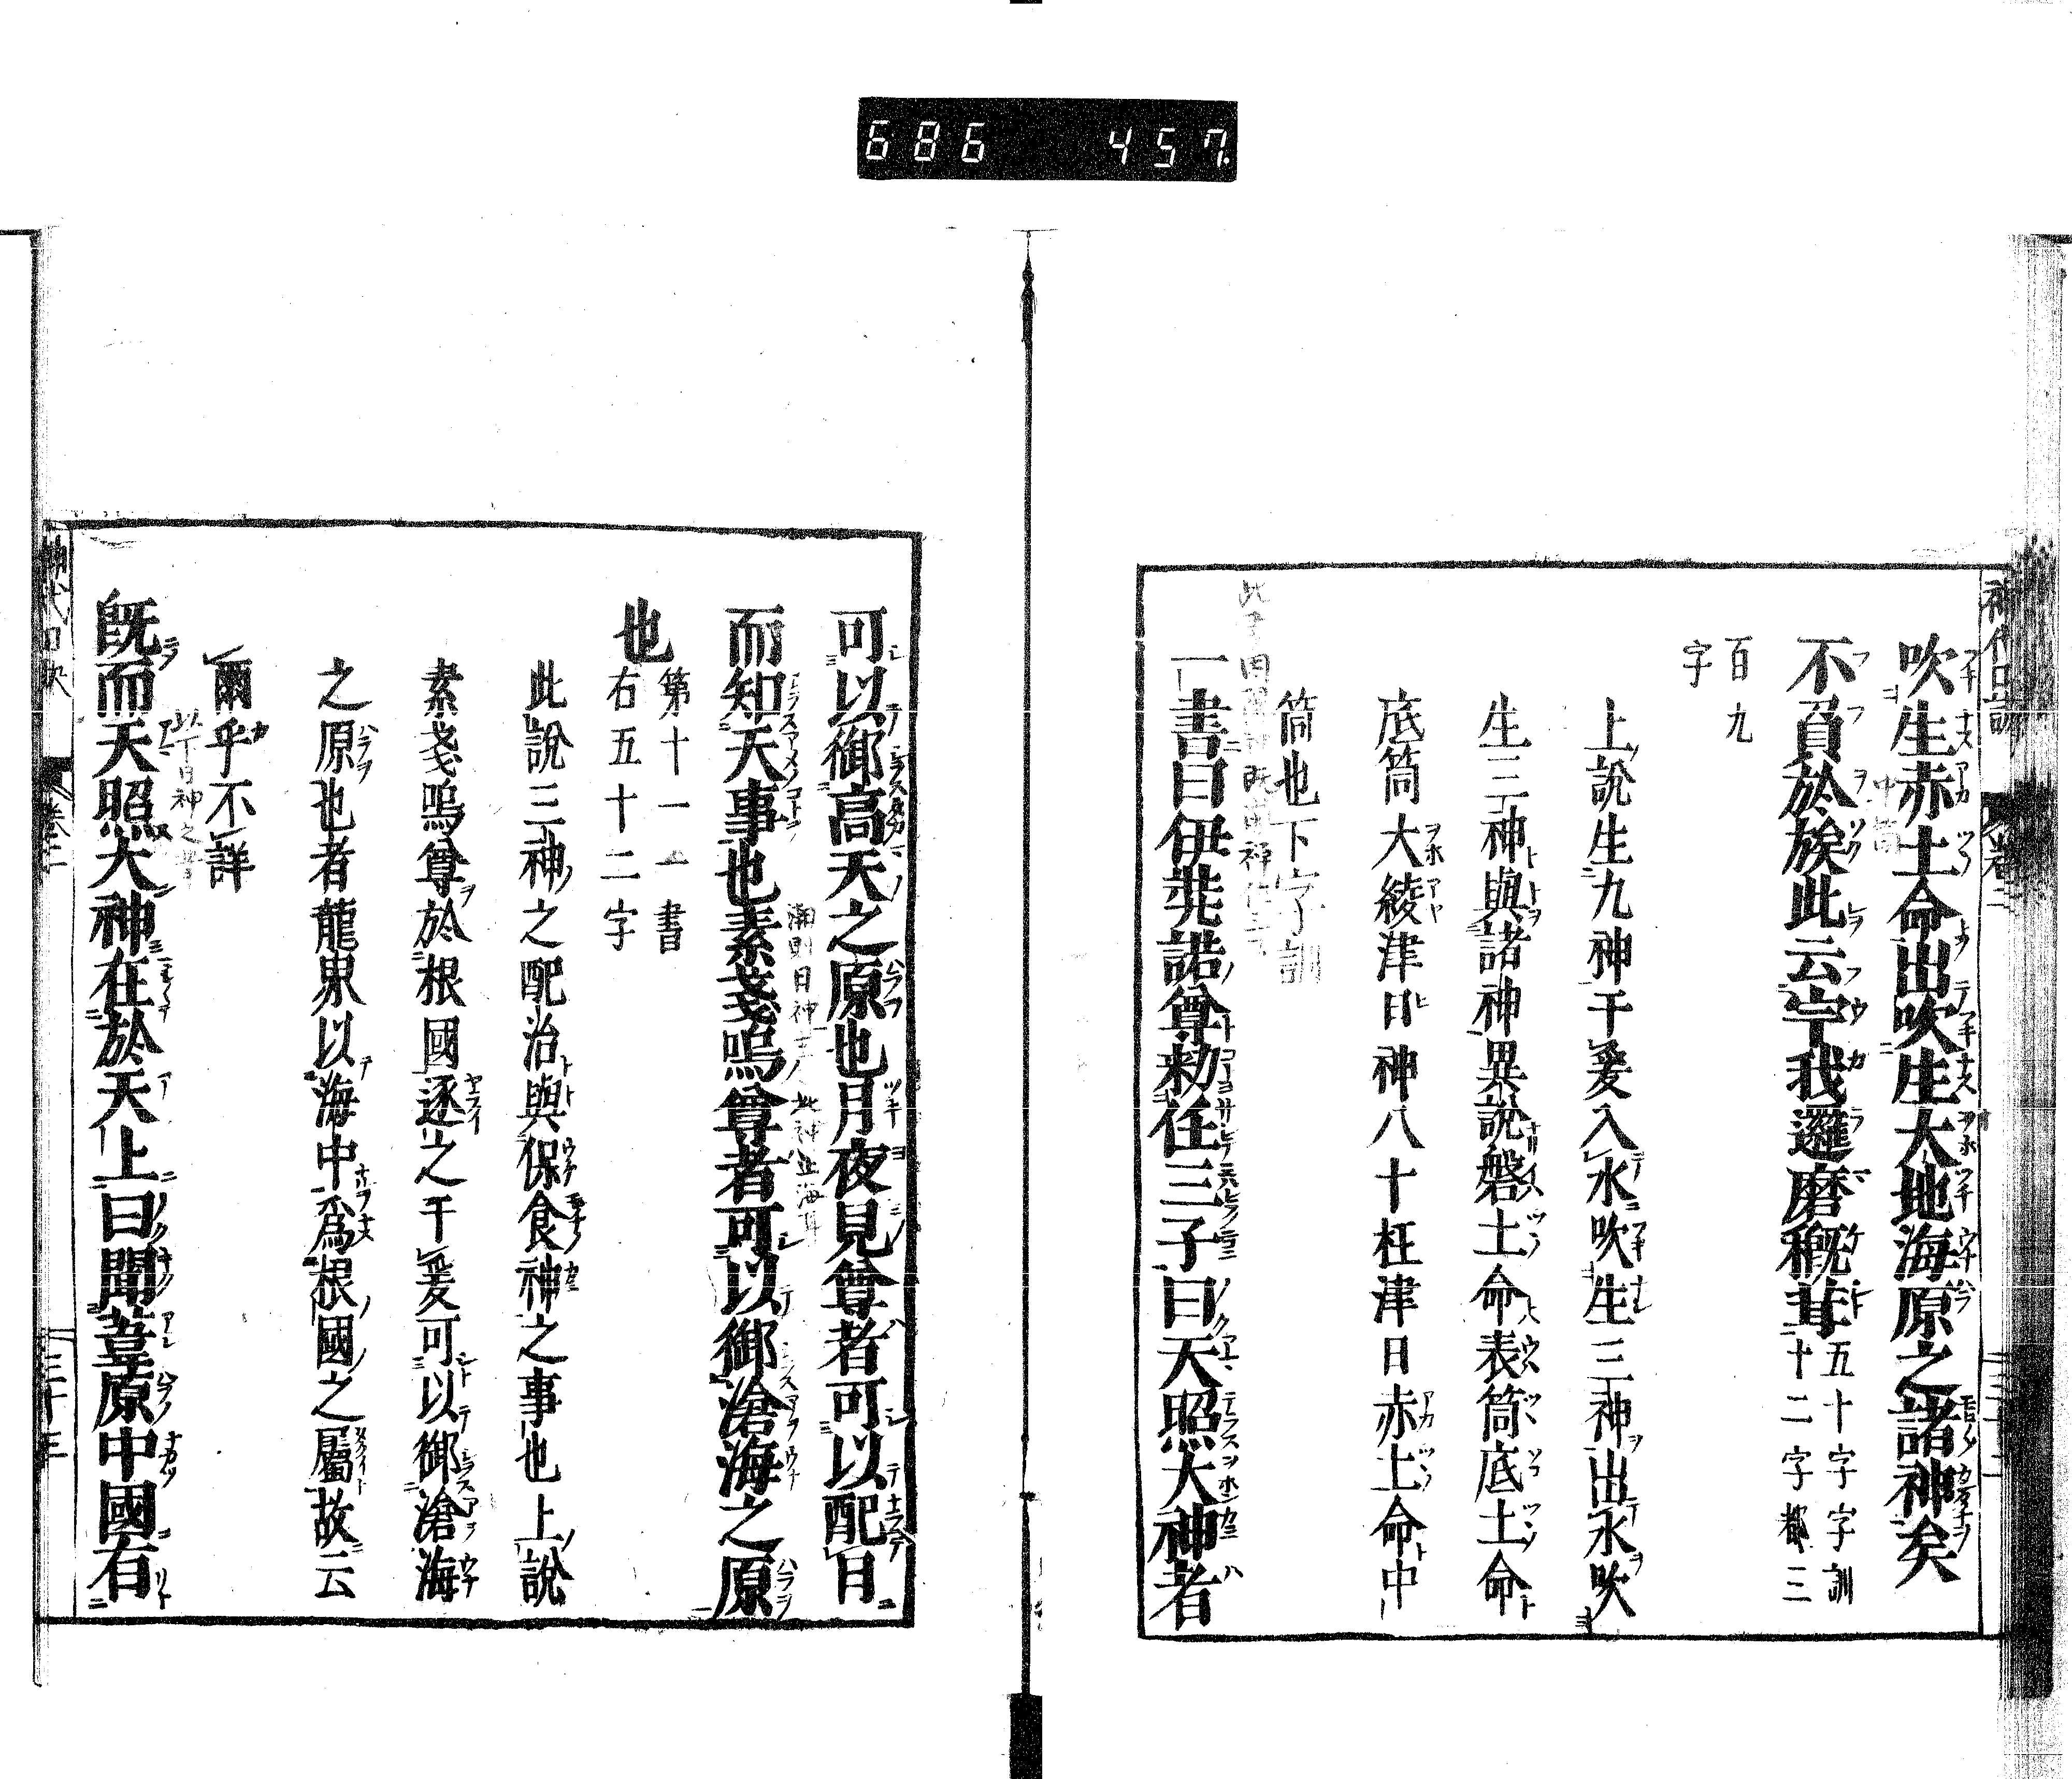 686 457
神代口訣 卷二 三十二
吹生赤土命出吹生大地海原之諸神矣
不負於族此云宇我邏磨穊茸五十字字訓
十二字都三
百九
字
上說生九神干爰入水吹生三神出水吹
生三神與諸神異說磐土命表筒底土命
底筒大綾津日神八十枉津日赤土命中
筒也下字訓
一書曰伊弉諾尊勑任三子曰天照大神者
可以御高天之原也月夜見尊者可以配日
而知天事也素戔嗚尊者可以御滄海之原
也第十一一書
右五十二字
此說三神之配治與保食神之事也上說
素戔嗚尊於根國逐之干爰可以御滄海
之原也者龍界以海中爲根國之屬故云
爾乎不詳
既而天照大神在於天上曰聞葦原中國有
神代口訣 卷二 三十三